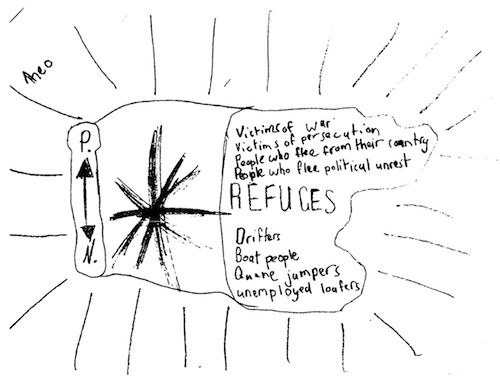 Aneo
P.
N.
Victims of war
Victims of persecution
People who flee from their country
People who flee political unrest
REFUCES
Drifters
Boat people
Quene jumpers
unemployed loafers